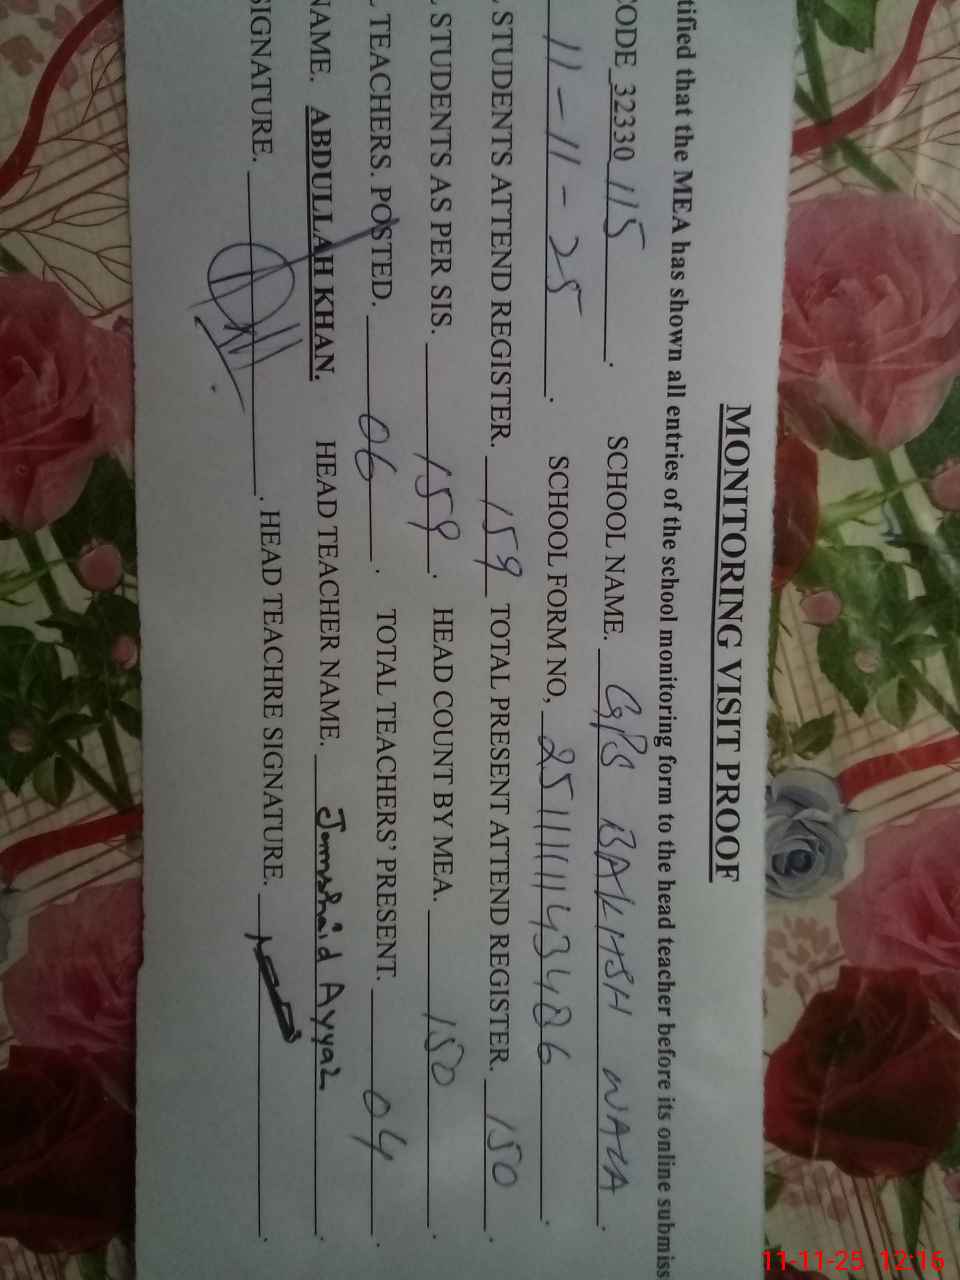 MONITORING VISIT PROOF
tified that the MEA has shown all entries of the school monitoring form to the head teacher before its online submiss
CODE 32330115. SCHOOL NAME. GPS BAKHSH WALA.
11-11-25. SCHOOL FORM NO, 25111143486.
STUDENTS ATTEND REGISTER. 159 TOTAL PRESENT ATTEND REGISTER. 150.
STUDENTS AS PER SIS. 159. HEAD COUNT BY MEA. 150.
TEACHERS. POSTED. 06. TOTAL TEACHERS' PRESENT. 04.
NAME. ABDULLAH KHAN. HEAD TEACHER NAME. Jamshaid Ayyaz.
SIGNATURE. . HEAD TEACHRE SIGNATURE. .
11-11-25 12:16